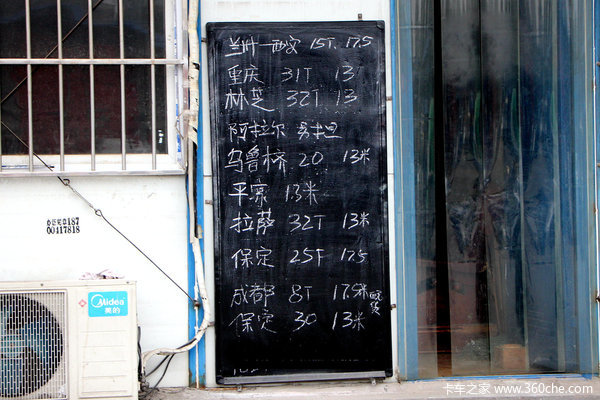 兰州—西安 15T. 17.5
重庆 31T 13
林芝 32T 13
阿拉尔
乌鲁木齐 20 13米
平凉 13米
拉萨 32T 13米
保定 25T 17.5
成都 8T 17.5米
保定 30 13米
00117818
Midea
美的
卡车之家 www.360che.com